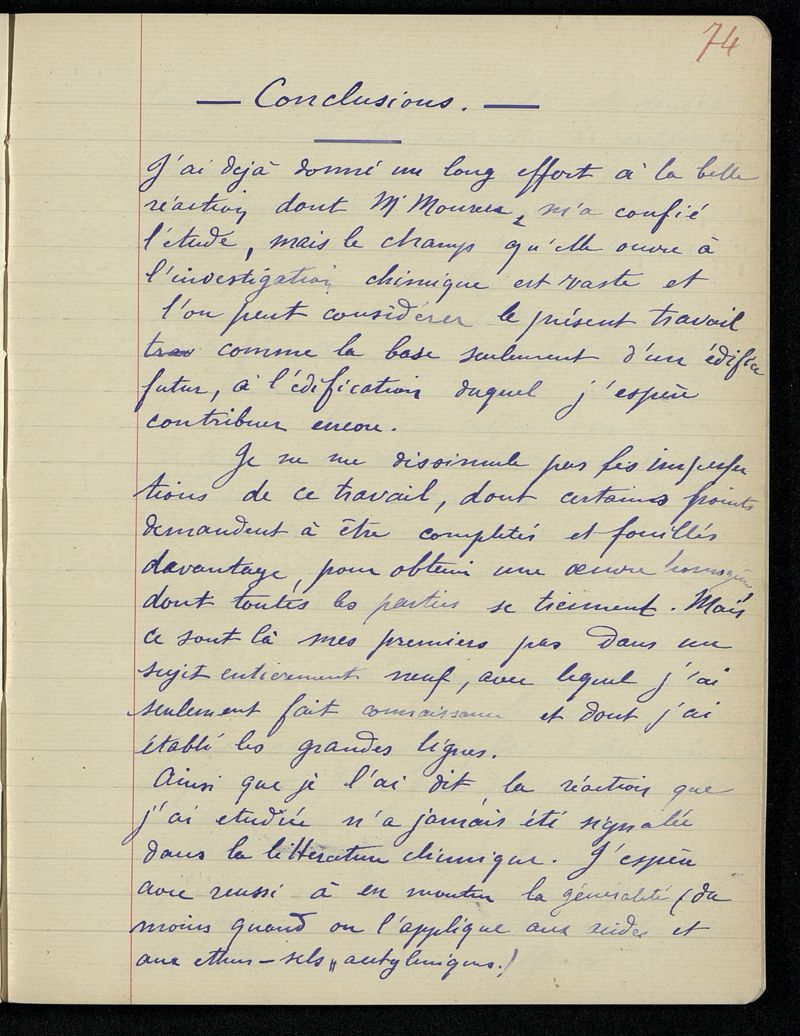 74
— Conclusions. —
J'ai dejà donné un long effort à la belle
réaction dont Mr Moureu m'a confié
l'étude, mais le champ qu'elle ouvre à
l'investigation chimique est vaste et
l'on peut considérer le présent travail
trav comme la base seulement d'un édifice
futur, à l'édification duquel j'espère
contribuer encore.
Je ne me dissimule pas les imperfec
tions de ce travail, dont certains points
demandent à être completés et fouillés
davantage, pour obtenir une œuvre homogène
dont toutes les parties se tiennent. Mais
ce sont là mes premiers pas dans un
sujet entierement neuf, avec lequel j'ai
seulement fait connaissance et dont j'ai
établi les grandes lignes.
Ainsi que je l'ai dit la réaction que
j'ai etudiée n'a jamais été signalée
dans la littérature chimique. J'espère
avoir reussi à en montrer la généralité (du
moins quand on l'applique aux acides et
aux ethers-sels acétyleniques.)